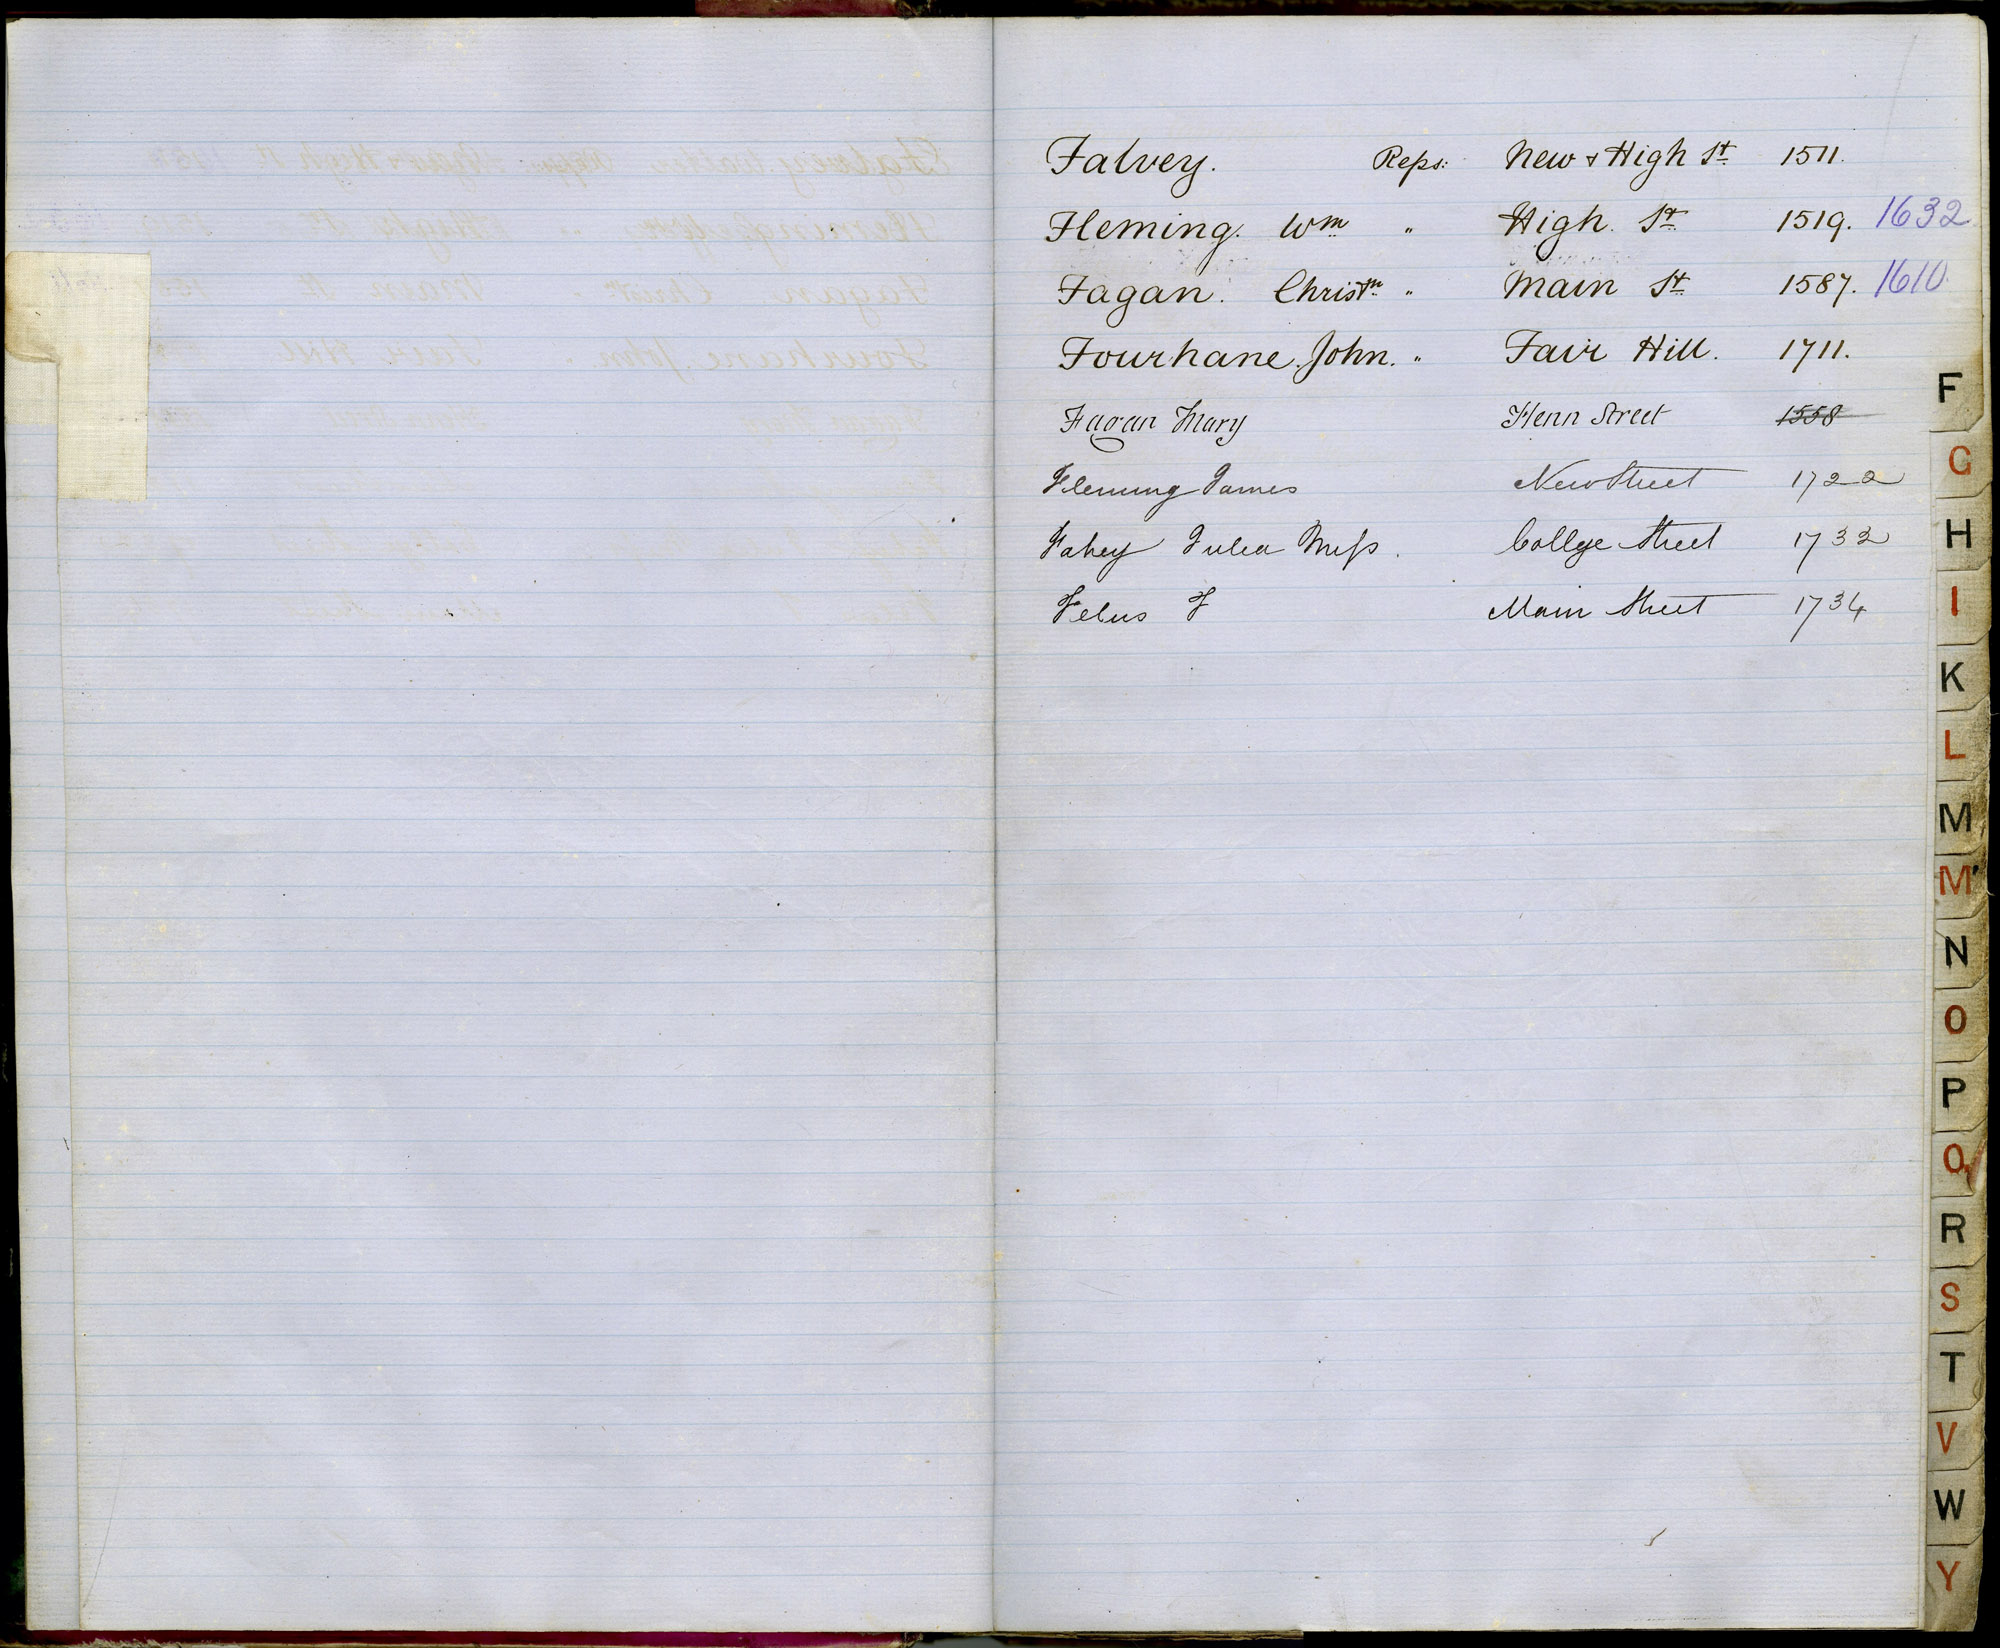 Falvey. Reps: New & High St 1511.
Fleming. Wm " High. St 1519. 1632
Fagan. Christr " Main St 1587. 1610.
Fourhane. John. " Fair Hill. 1711.
Fagan Mary Henn Street 1558
Fleming James New Street 1722
Fahey Julia Miss. College Street 1732
Felus F Main Street 1734
F
G
H
I
K
L
M
Mc
N
O
P
Q
R
S
T
V
W
Y